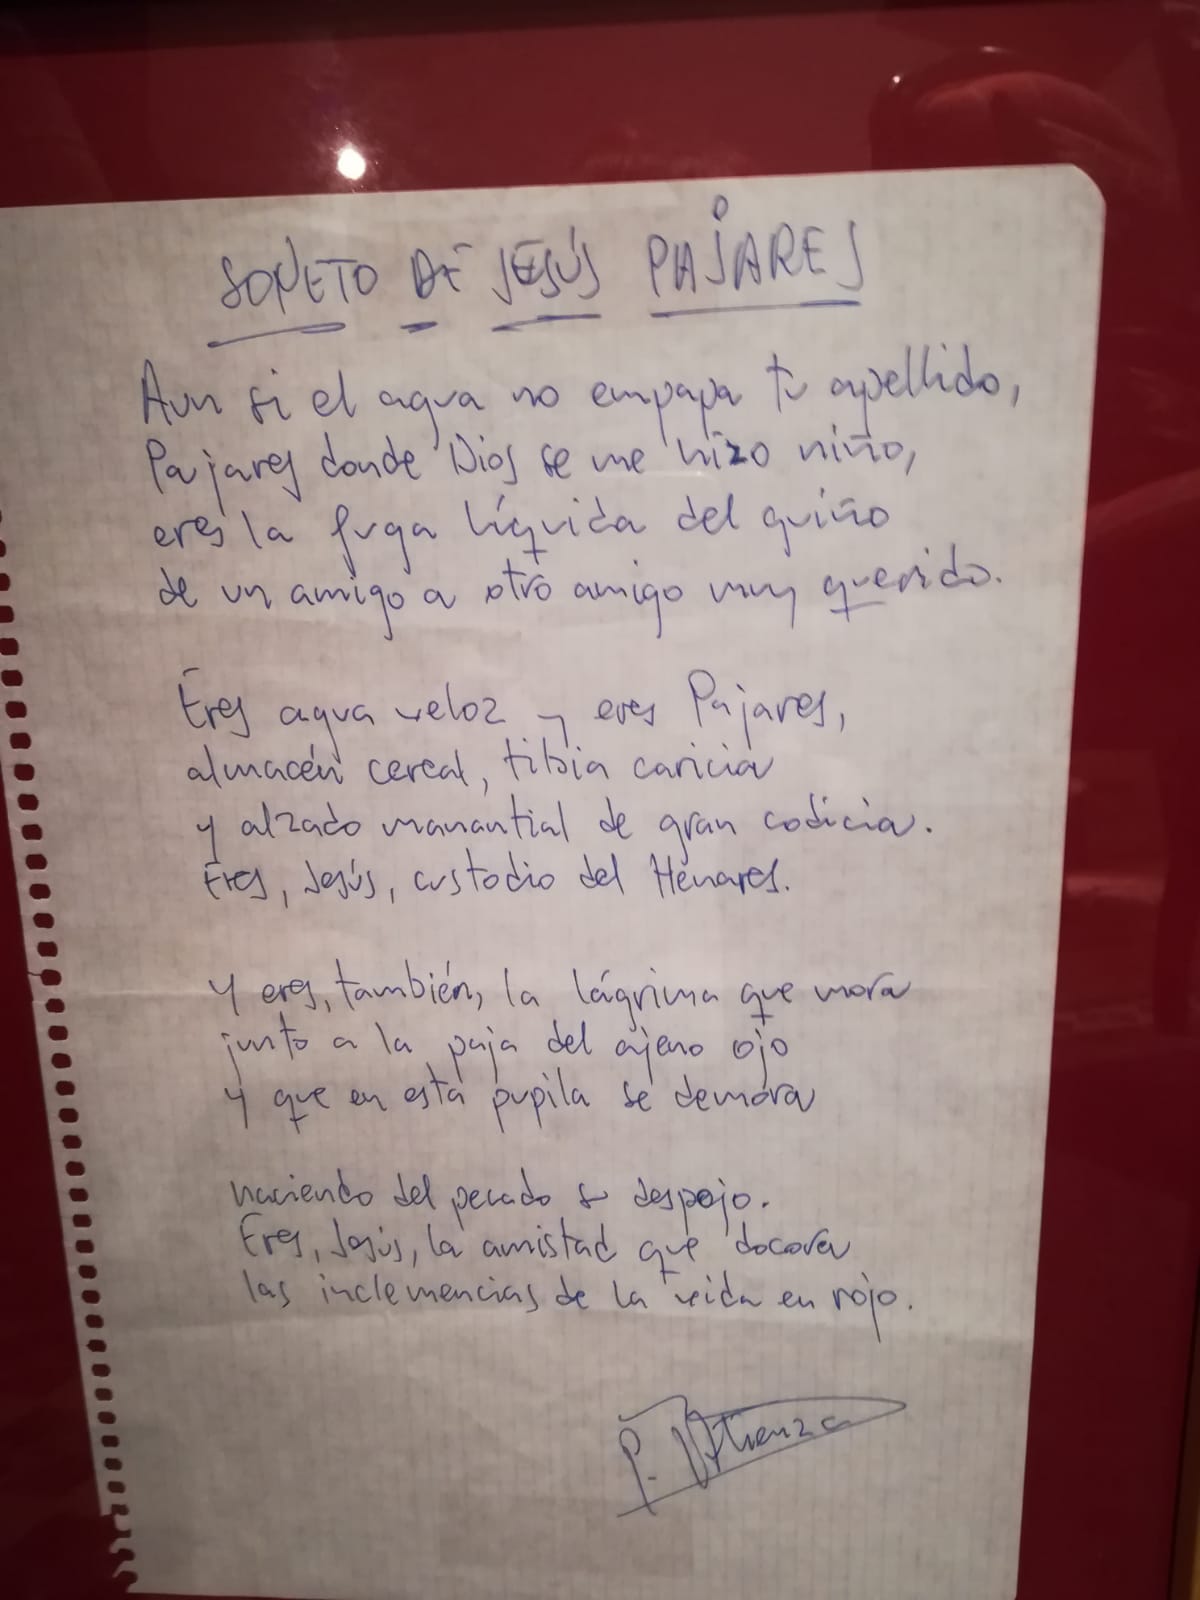 SONETO DE JESÚS PAJARES
Aun si el agua no empapa tu apellido,
Pajares donde Dios se me hizo niño,
eres la fuga líquida del guiño
de un amigo a otro amigo muy querido.
Eres agua veloz y eres Pajares,
almacén cereal, tibia caricia
y alzado manantial de gran codicia.
Eres, Jesús, custodio del Henares.
Y eres, también, la lágrima que mora
junto a la paja del ajeno ojo
y que en esta pupila se demora
haciendo del pecado su despojo.
Eres, Jesús, la amistad que docora
las inclemencias de la vida en rojo.
P. Atienza